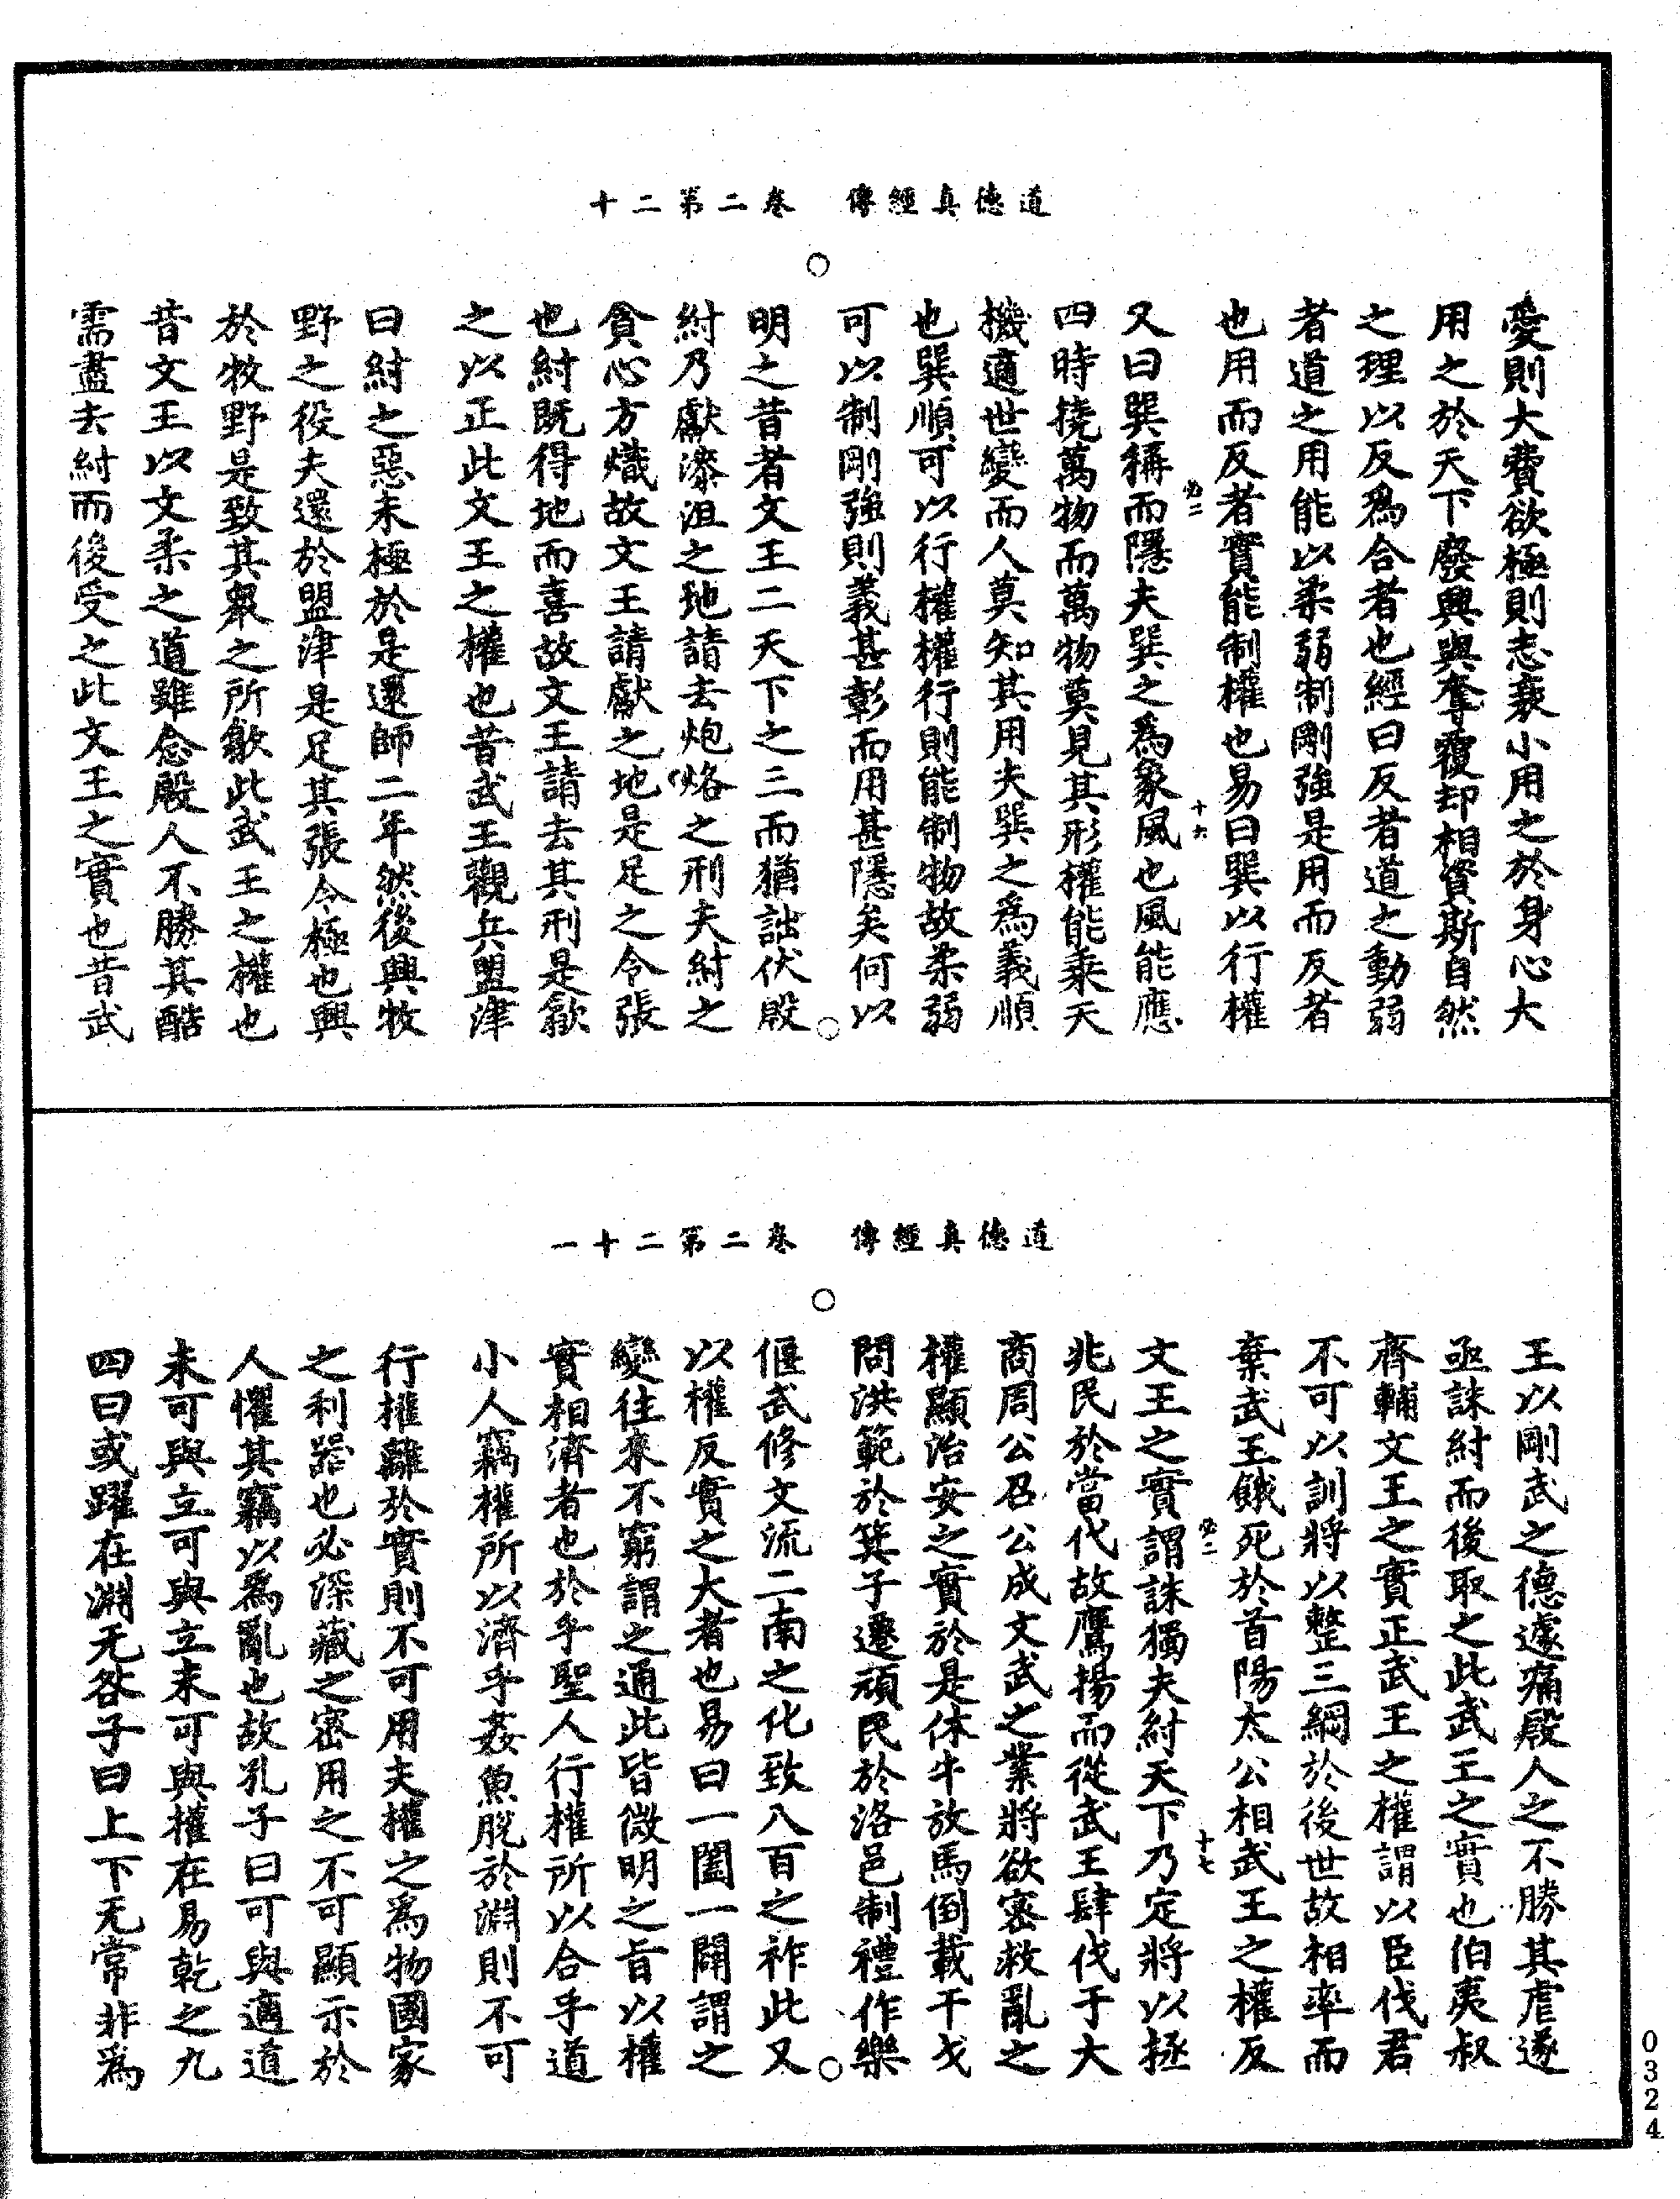 道德真經傳　卷二第二十
愛則大費欲極則志衰小用之於身心大
用之於天下廢興與奪覆却相資斯自然
之理以反爲合者也經曰反者道之動弱
者道之用能以柔弱制剛強是用而反者
也用而反者實能制權也易曰巽以行權
必二
十六
又曰巽稱而隱夫巽之爲象風也風能應
四時撓萬物而萬物莫見其形權能乘天
機適世變而人莫知其用夫巽之爲義順
也巽順可以行權權行則能制物故柔弱
可以制剛強則義甚彰而用甚隱矣何以
明之昔者文王二天下之三而猶詘伏殷
紂乃獻漆沮之地請去炮烙之刑夫紂之
貪心方熾故文王請獻之地是足之令張
也紂既得地而喜故文王請去其刑是歙
之以正此文王之權也昔武王觀兵盟津
曰紂之惡未極於是還師二年然後興牧
野之役夫還於盟津是足其張令極也興
於牧野是致其眾之所歙此武王之權也
昔文王以文柔之道雖念殷人不勝其酷
需盡去紂而後受之此文王之實也昔武
道德真經傳　卷二第二十一
王以剛武之德遽痛殷人之不勝其虐遂
亟誅紂而後取之此武王之實也伯夷叔
齊輔文王之實正武王之權謂以臣伐君
不可以訓將以整三綱於後世故相率而
棄武王餓死於首陽太公相武王之權反
必二
十七
文王之實謂誅獨夫紂天下乃定將以拯
兆民於當代故鷹揚而從武王肆伐于大
商周公召公成文武之業將欲密救亂之
權顯治安之實於是休牛放馬倒載干戈
問洪範於箕子遷頑民於洛邑制禮作樂
偃武修文流二南之化致八百之祚此又
以權反實之大者也易曰一闔一闢謂之
變往來不窮謂之通此皆微明之旨以權
實相濟者也於乎聖人行權所以合乎道
小人竊權所以濟乎姦魚脫於淵則不可
行權離於實則不可用夫權之爲物國家
之利器也必深藏之密用之不可顯示於
人懼其竊以爲亂也故孔子曰可與適道
未可與立可與立未可與權在易乾之九
四曰或躍在淵无咎子曰上下无常非爲
0324